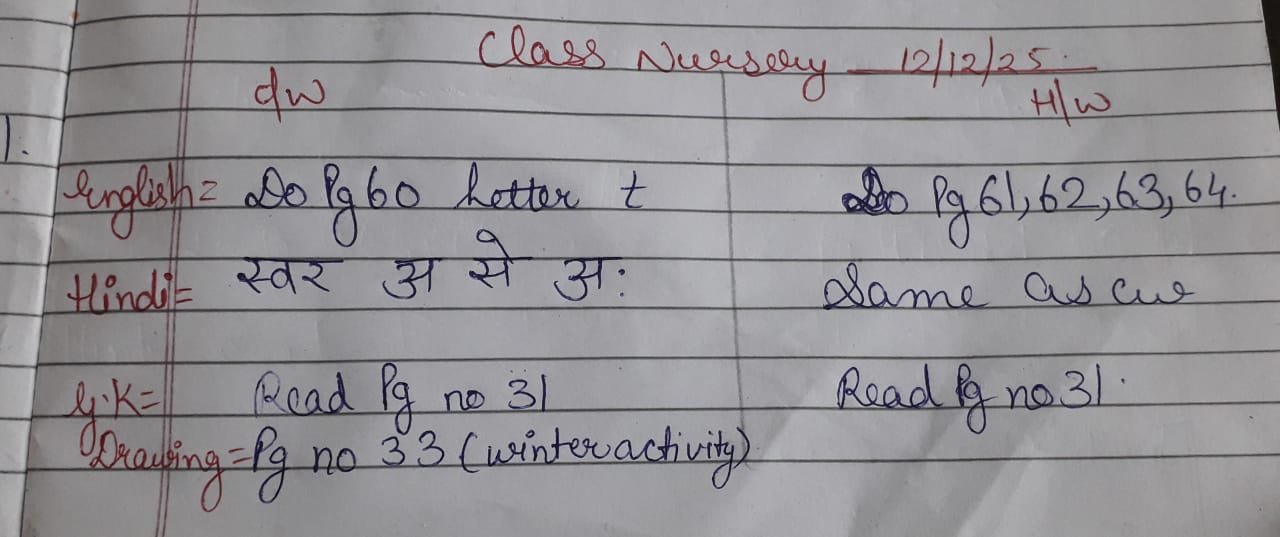 Class Nursery 12/12/25.
C/W H/W
1.
English = Do Pg 60 Letter t Do Pg 61, 62, 63, 64.
Hindi = स्वर अ से अः Same as cw
G.K = Read Pg no 31 Read Pg no 31.
Drawing = Pg no 33 (winter activity)